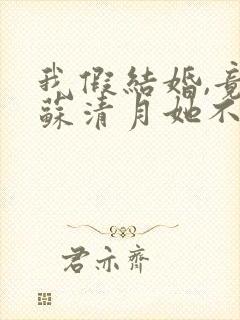 我假結婚,竟
蘇清月她不
君亦齊